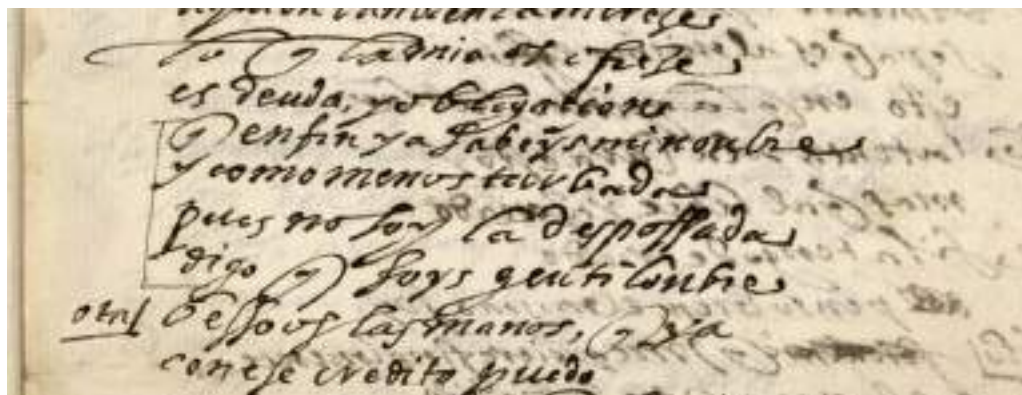 lo q la mia os ofreze
es deuda, y obligacion
q en fin ya sabeys mi nonbre
y como menos turbada
pues no soy la desposada
digo q soys gentilonbre
otra/ besso os las manos, q ya
con ese credito puedo